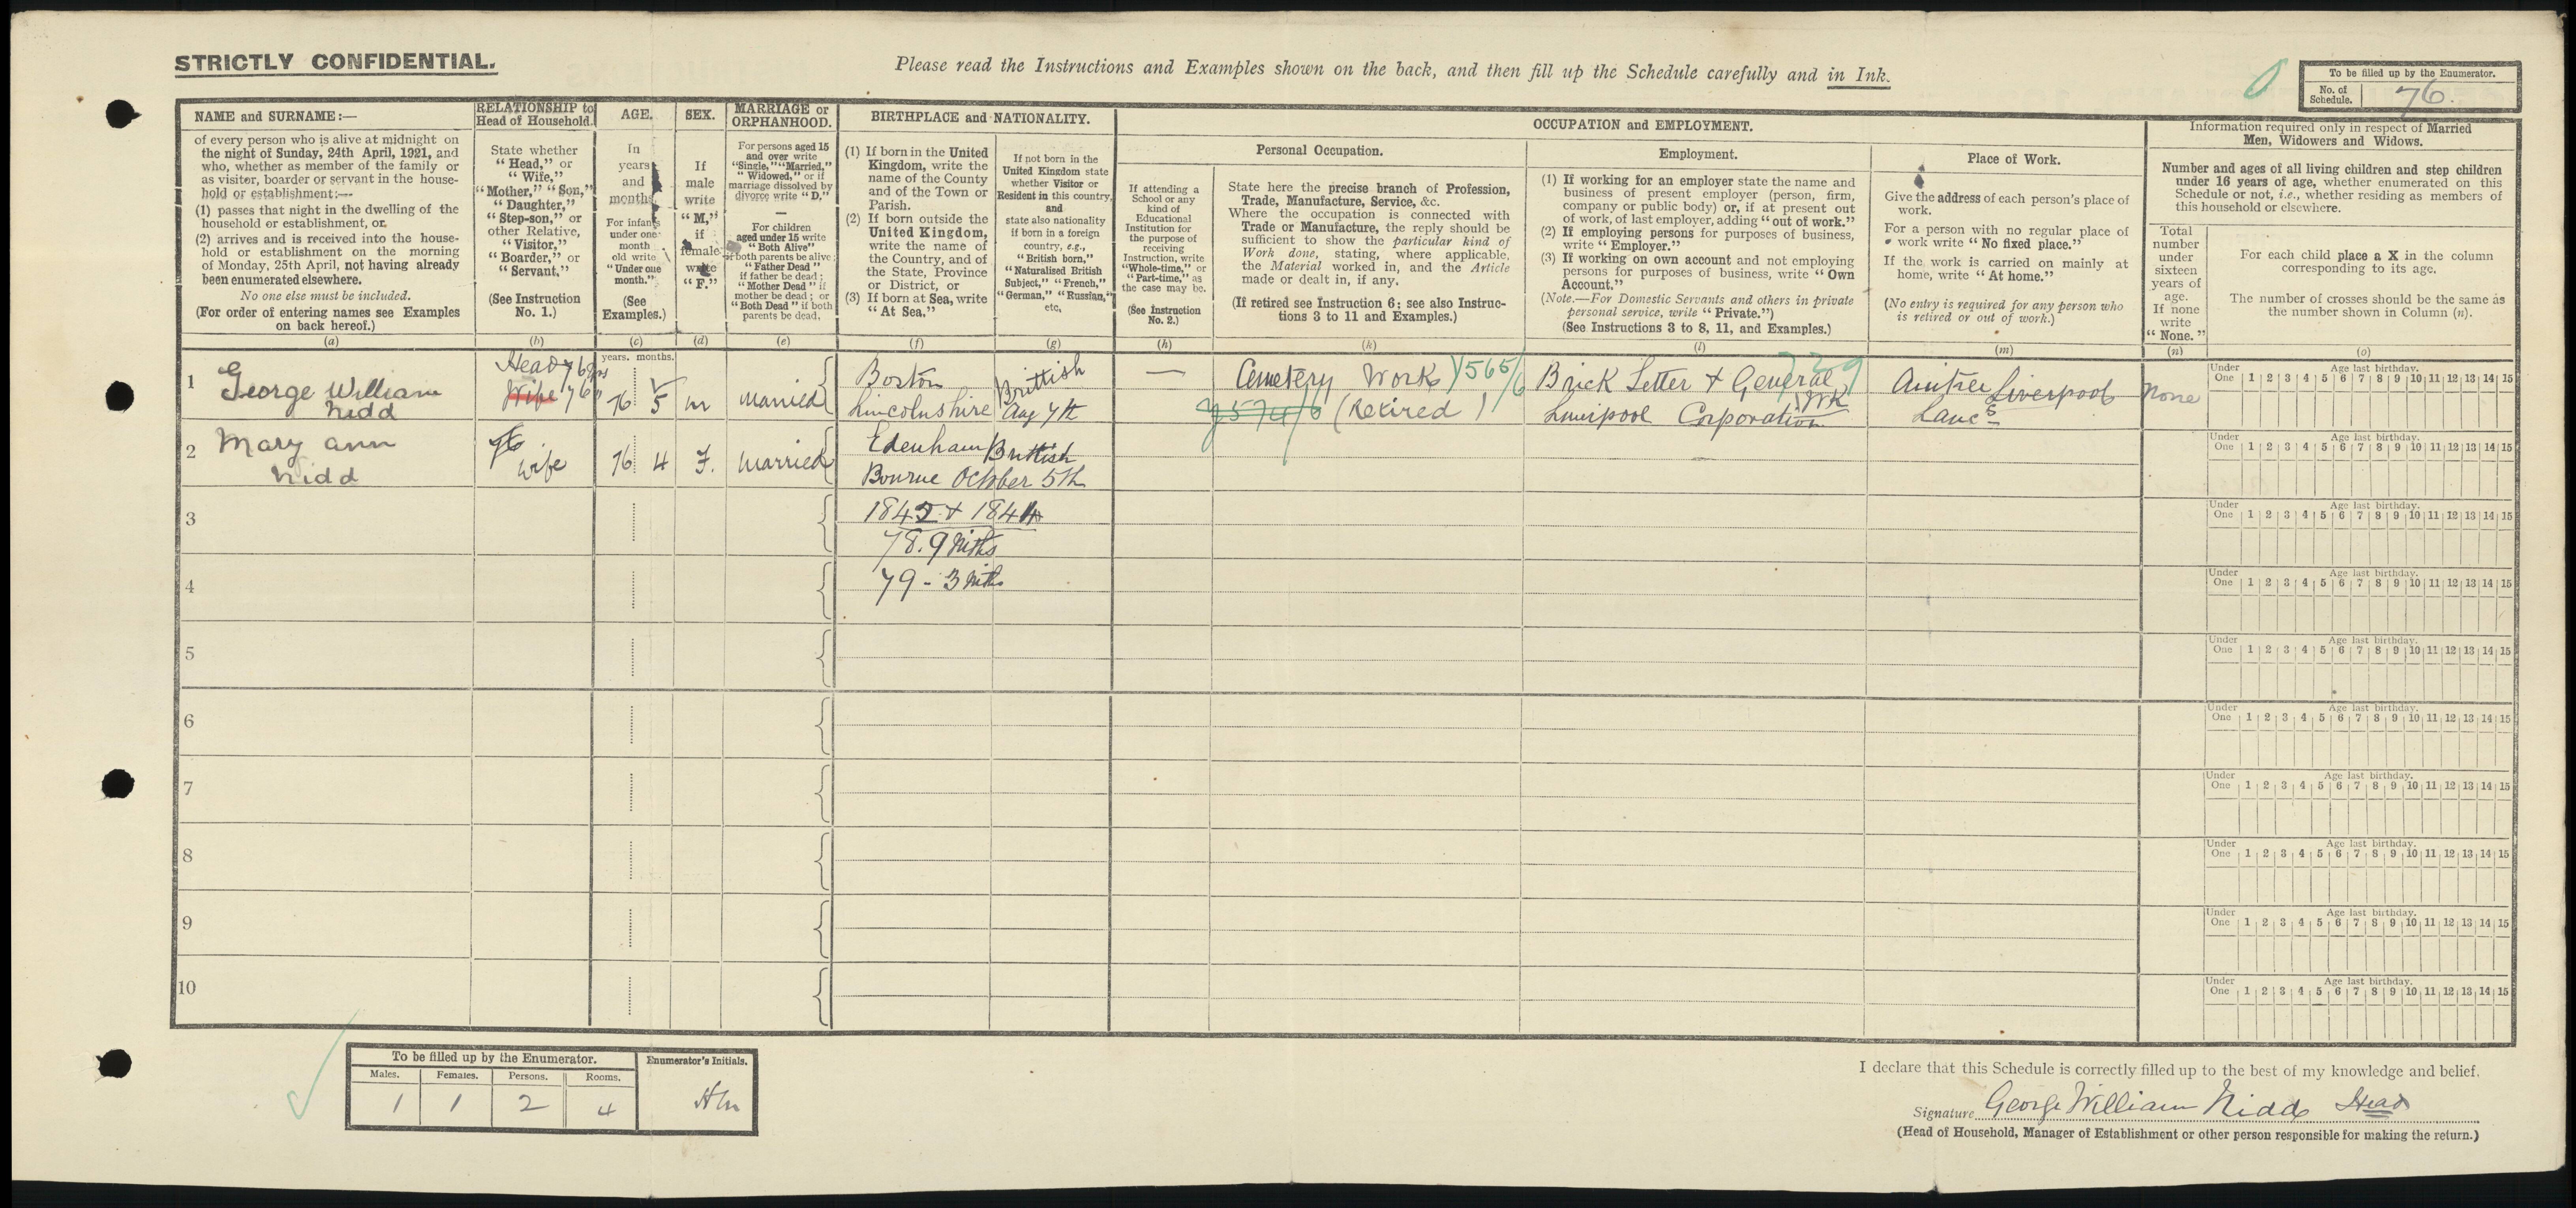 STRICTLY CONFIDENTIAL.
Please read the Instructions and Examples shown on the back, and then fill up the Schedule carefully and in Ink.
To be filled up by the Enumerator.
No. of Schedule. 76.
NAME and SURNAME:—
of every person who is alive at midnight on
the night of Sunday, 24th April, 1921, and
who, whether as member of the family or
as visitor, boarder or servant in the house-
hold or establishment:—
(1) passes that night in the dwelling of the
household or establishment, or
(2) arrives and is received into the house-
hold or establishment on the morning
of Monday, 25th April, not having already
been enumerated elsewhere.
No one else must be included.
(For order of entering names see Examples
on back hereof.)
(a)
RELATIONSHIP to
Head of Household.
State whether
"Head," or
"Wife,"
"Mother," "Son,"
"Daughter,"
"Step-son," or
other Relative,
"Visitor,"
"Boarder," or
"Servant,"
(See Instruction
No. 1.)
(b)
AGE.
In
years
and
months.
For infants
under one
month
old write
"Under one
month."
(See
Examples.)
(c)
SEX.
If
male
write
"M,"
if
female
write
"F."
(d)
MARRIAGE or
ORPHANHOOD.
For persons aged 15
and over write
"Single," "Married,"
"Widowed," or if
marriage dissolved by
divorce write "D,"
—
For children
aged under 15 write
"Both Alive"
if both parents be alive;
"Father Dead"
if father be dead;
"Mother Dead" if
mother be dead; or
"Both Dead" if both
parents be dead.
(e)
BIRTHPLACE and NATIONALITY.
(1) If born in the United
Kingdom, write the
name of the County
and of the Town or
Parish.
(2) If born outside the
United Kingdom,
write the name of
the Country, and of
the State, Province
or District, or
(3) If born at Sea, write
"At Sea."
(f)
If not born in the
United Kingdom state
whether Visitor or
Resident in this country,
and
state also nationality
if born in a foreign
country, e.g.,
"British born,"
"Naturalised British
Subject," "French,"
"German," "Russian,"
etc.
(g)
OCCUPATION and EMPLOYMENT.
Personal Occupation.
If attending a
School or any
kind of
Educational
Institution for
the purpose of
receiving
Instruction, write
"Whole-time," or
"Part-time," as
the case may be.
(See Instruction
No. 2.)
(h)
State here the precise branch of Profession,
Trade, Manufacture, Service, &c.
Where the occupation is connected with
Trade or Manufacture, the reply should be
sufficient to show the particular kind of
Work done, stating, where applicable,
the Material worked in, and the Article
made or dealt in, if any.
(If retired see Instruction 6; see also Instruc-
tions 3 to 11 and Examples.)
(k)
Employment.
(1) If working for an employer state the name and
business of present employer (person, firm,
company or public body) or, if at present out
of work, of last employer, adding "out of work."
(2) If employing persons for purposes of business,
write "Employer."
(3) If working on own account and not employing
persons for purposes of business, write "Own
Account."
(Note.—For Domestic Servants and others in private
personal service, write "Private.")
(See Instructions 3 to 8, 11, and Examples.)
(l)
Place of Work.
Give the address of each person's place of
work.
For a person with no regular place of
work write "No fixed place."
If the work is carried on mainly at
home, write "At home."
(No entry is required for any person who
is retired or out of work.)
(m)
Information required only in respect of Married
Men, Widowers and Widows.
Number and ages of all living children and step children
under 16 years of age, whether enumerated on this
Schedule or not, i.e., whether residing as members of
this household or elsewhere.
Total
number
under
sixteen
years of
age.
If none
write
"None."
(n)
For each child place a X in the column
corresponding to its age.
The number of crosses should be the same as
the number shown in Column (n).
(o)
years. months.
1 George William Nidd
Head 76 yrs
Wife 76"
76 5 m Married
Boston
Lincolnshire
Brittish
Aug 7th
—
Cemetery Work
(Retired)
Brick Setter & General Wk
Liverpool Corporation
Liverpool
Lancs
None
2 Mary Ann Nidd
wife
76 4 F. Married
Edenham Brittish
Bourne October 5th
3
1842 & 1844
78.9 Mths
4
79 - 3 Mths
5
6
7
8
9
10
Under One Age last birthday.
1 2 3 4 5 6 7 8 9 10 11 12 13 14 15
Under One Age last birthday.
1 2 3 4 5 6 7 8 9 10 11 12 13 14 15
Under One Age last birthday.
1 2 3 4 5 6 7 8 9 10 11 12 13 14 15
Under One Age last birthday.
1 2 3 4 5 6 7 8 9 10 11 12 13 14 15
Under One Age last birthday.
1 2 3 4 5 6 7 8 9 10 11 12 13 14 15
Under One Age last birthday.
1 2 3 4 5 6 7 8 9 10 11 12 13 14 15
Under One Age last birthday.
1 2 3 4 5 6 7 8 9 10 11 12 13 14 15
Under One Age last birthday.
1 2 3 4 5 6 7 8 9 10 11 12 13 14 15
Under One Age last birthday.
1 2 3 4 5 6 7 8 9 10 11 12 13 14 15
Under One Age last birthday.
1 2 3 4 5 6 7 8 9 10 11 12 13 14 15
To be filled up by the Enumerator.
Enumerator's Initials.
Males. Females. Persons. Rooms.
1 1 2 4
I declare that this Schedule is correctly filled up to the best of my knowledge and belief.
Signature George William Nidd Head
(Head of Household, Manager of Establishment or other person responsible for making the return.)